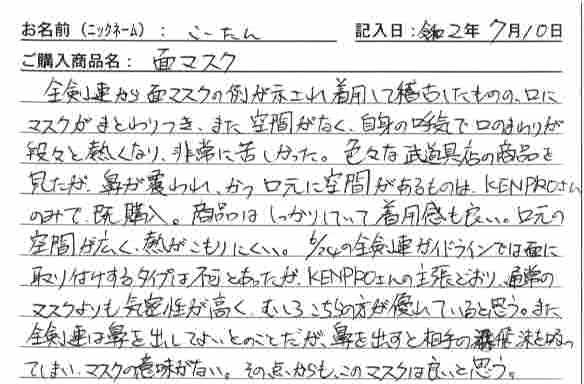 お名前（ニックネーム）： こーたん 記入日：令和2年7月10日
ご購入商品名： 面マスク
全剣連から面マスクの例が示され着用して稽古したものの、口に
マスクがまとわりつき、また空間がなく、自身の呼気で口のまわりが
段々と熱くなり、非常に苦しかった。色々な武道具店の商品を
見たが、鼻が覆われ、かつ口元に空間があるものは、KENPROさん
のみで、即購入。商品はしっかりしていて着用感も良い。口元の
空間が広く、熱がこもりにくい。6/24の全剣連ガイドラインでは面に
取り付けするタイプは不可とあったが、KENPROさんの主張どおり、通常の
マスクよりも気密性が高く、むしろこちらの方が優れていると思う。また
全剣連は鼻を出してよいとのことだが、鼻を出すと相手の飛沫を吸っ
てしまい、マスクの意味がない。その点からも、このマスクは良いと思う。